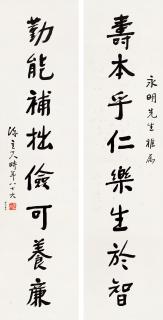 永明先生雅屬
壽本乎仁樂生於智
勤能補拙儉可養廉
時年八十六